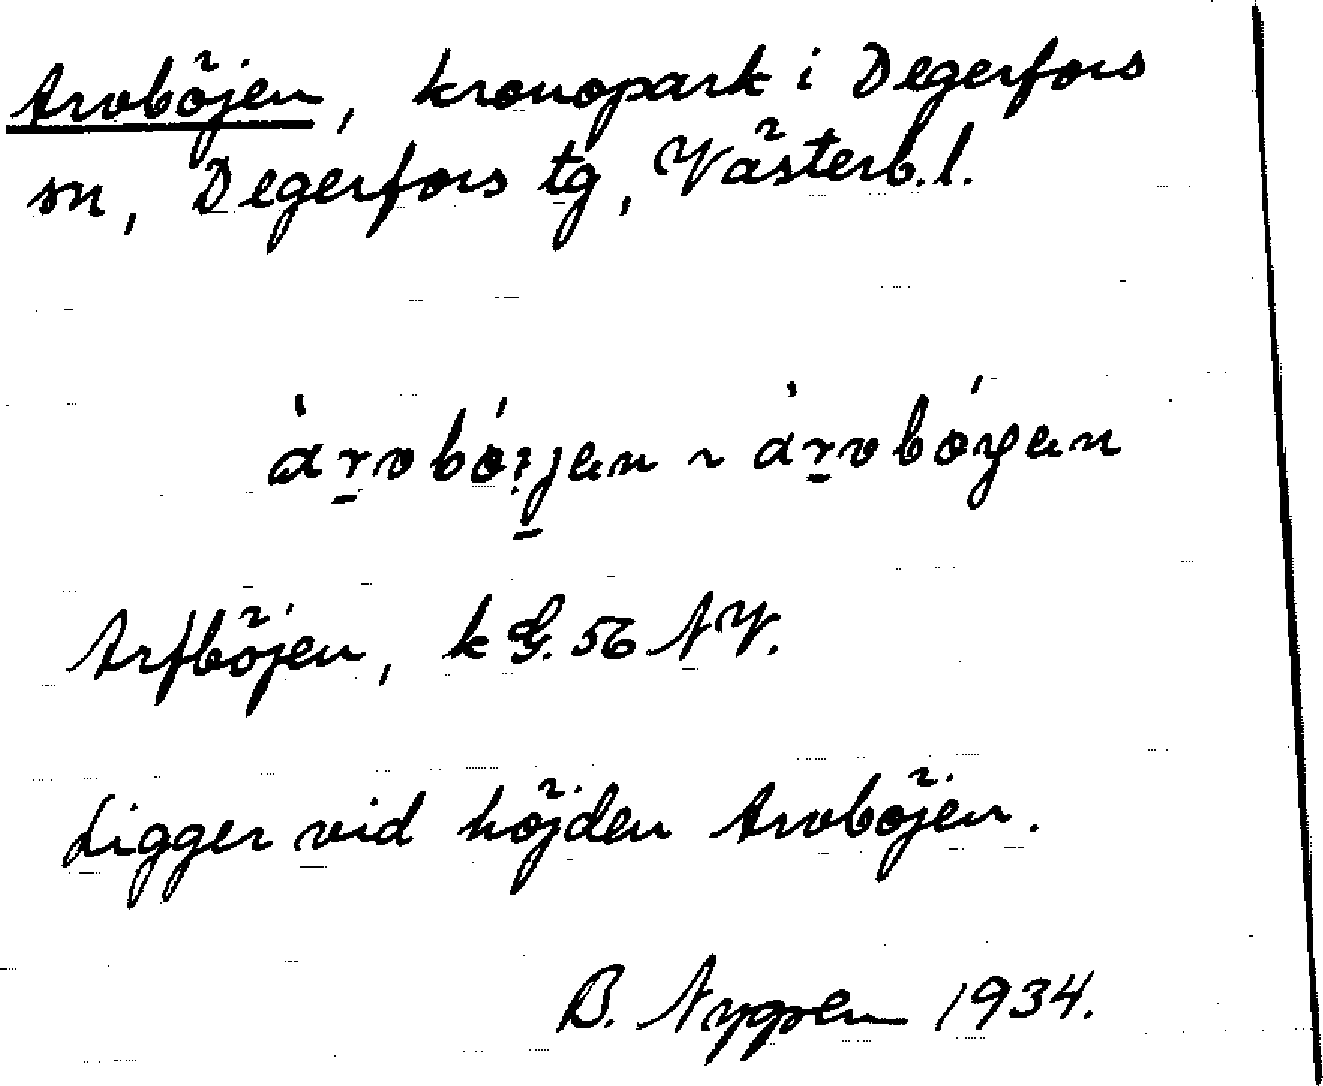 Arvböjen, kronopark i Degerfors
sn, Degerfors tg, Västerb.l.
Arfböjen, k G. 56 NV.
Ligger vid höjden Arvböjen.
B. Nygren 1934.